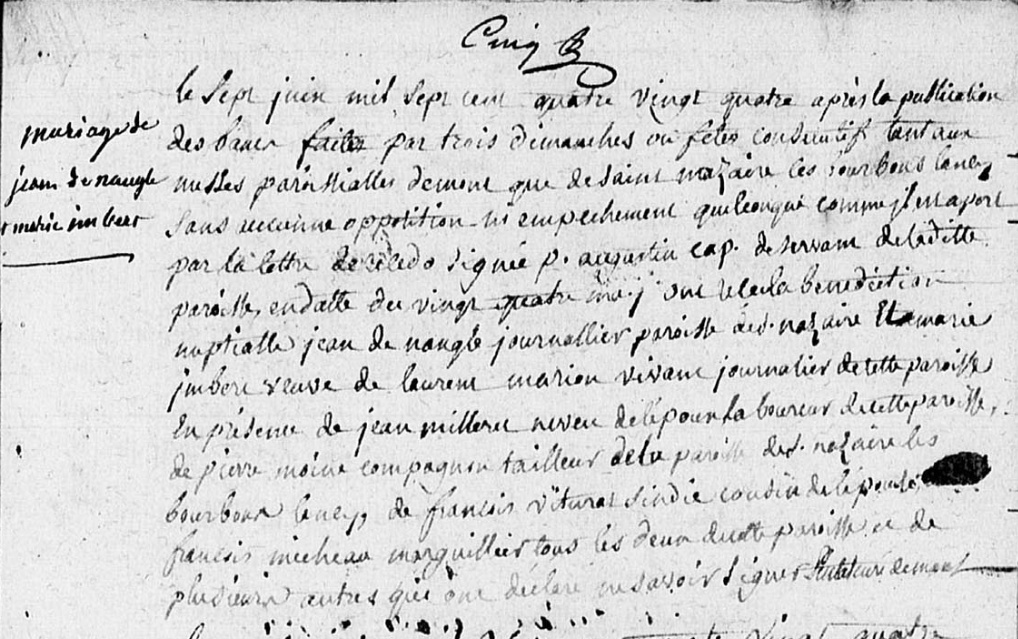 Cinq
mariage de
jean de naugle
et marie imbert
le sept juin mil sept cent quatre vingt quatre après la publication
des bans faites par trois dimanches ou fetes consécutifs tant aux
messes paroissialles demont que de saint nazaire les bourbons lancy
sans aucunne opposition ni empechement quelconque comme il en aport
par la lettre signée p. augustin cap. deservant de laditte
paroisse, en datte du vingt quatre mai, ont la benediction
nuptialle jean de naugle journallier paroisse de s. nazaire et marie
imbert veuve de laurent marion vivant journalier de cette paroisse
En présence de jean milleret neveu de lépoux laboureur de cette paroisse,
de pierre moine compagnon tailleur de la paroisse de s. nazaire les
bourbons lancy, de francois viturat sindic cousin de lépouse,
francois micheau marguillier tous les deux de cette paroisse et de
plusieurs autres qui ont déclaré ne savoir signer demont
vingt quatre